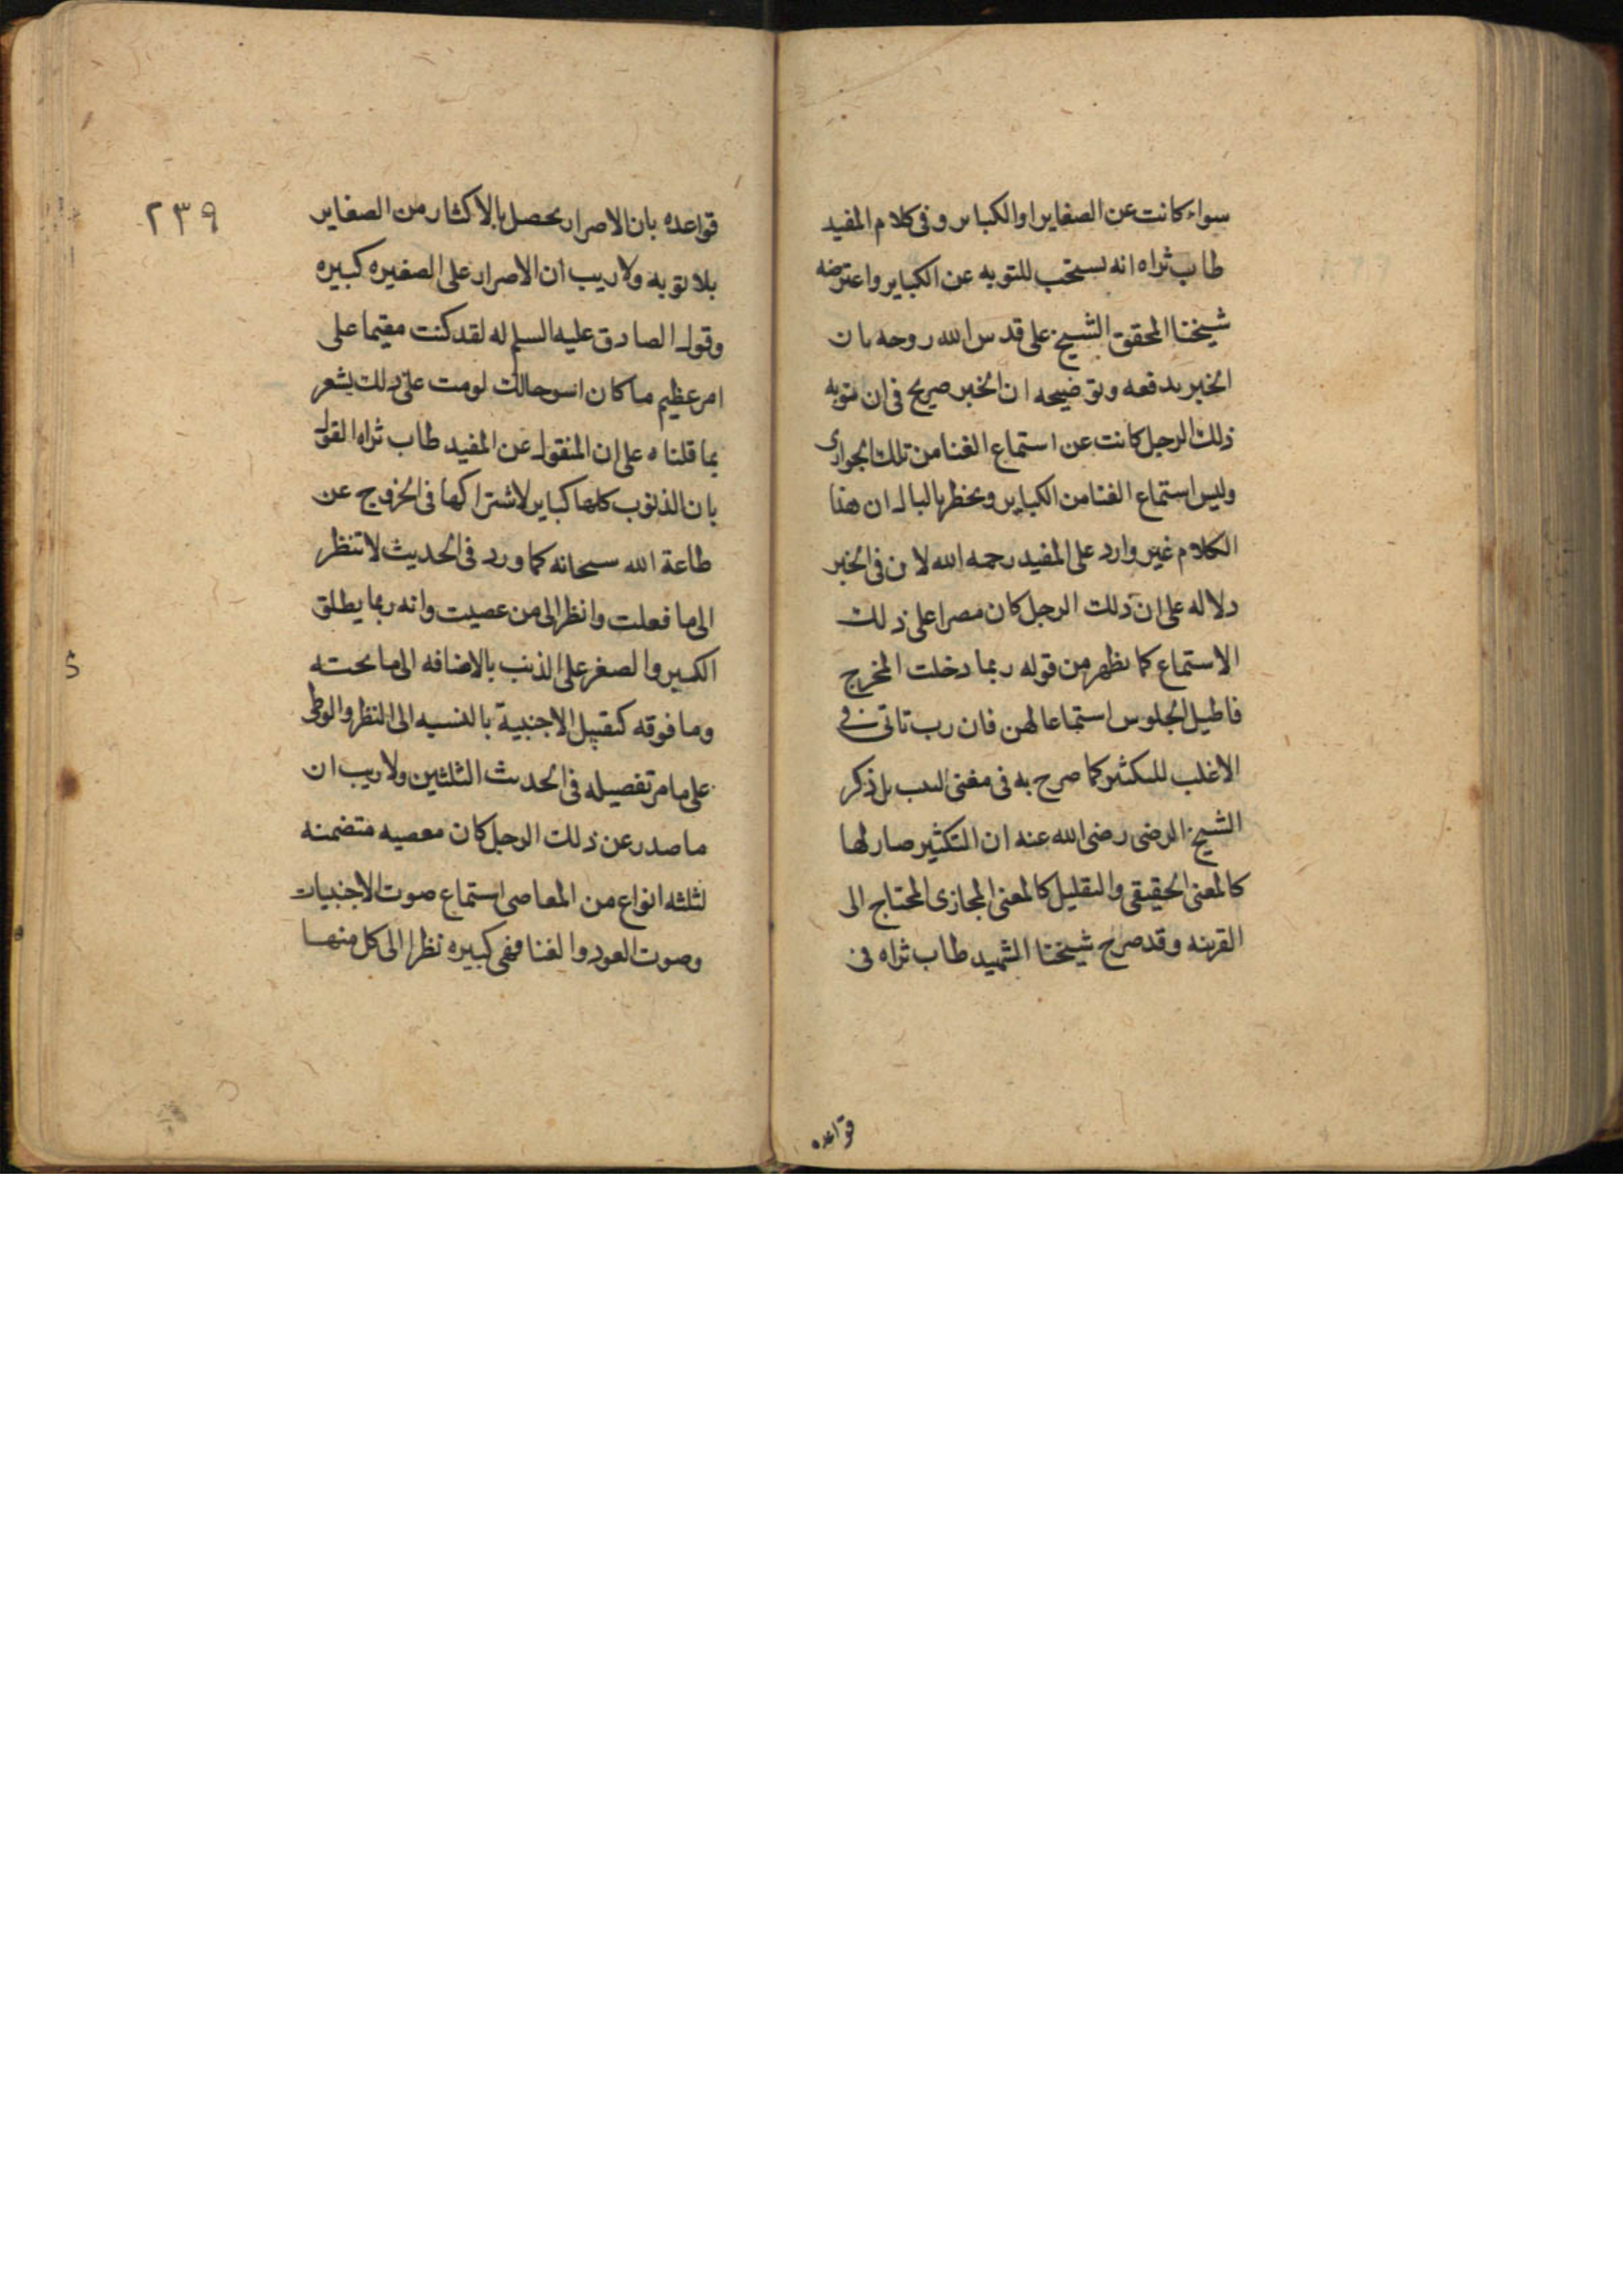 سواء كانت عن الصغاير او الكباير وفى كلام المفيد
طاب ثراه انه يستحب للتوبه عن الكباير واعترضه
شيخنا المحقق الشيخ على قدس الله روحه بان
الخبر يدفعه وتوضيحه ان الخبر صريح فى ان توبه
ذلك الرجل كانت عن استماع الغنا من تلك الجوارى
وليس استماع الغنا من الكباير ويخطر بالبال ان هذا
الكلام غير وارد على المفيد رحمه الله لان فى الخبر
دلاله على ان ذلك الرجل كان مصرا على ذلك
الاستماع كما يظهر من قوله ربما دخلت المخرج
فاطيل الجلوس استماعا لهن فان رب تاتى فى
الاغلب للتكثير كما صرح به فى مغنى اللبيب بل ذكر
الشيخ الرضى رضى الله عنه ان التكثير صار لها
كالمعنى الحقيقى والتقليل كالمعنى المجازى المحتاج الى
القرينه وقد صرح شيخنا الشهيد طاب ثراه فى
قواعده
٢٣٩
قواعده بان الاصرار يحصل بالاكثار من الصغاير
بلا توبه ولا ريب ان الاصرار على الصغيره كبيره
وقول الصادق عليه السلم له لقد كنت مقيما على
امر عظيم ما كان اسوء حالك لو مت على ذلك يشعر
بما قلناه على ان المنقول عن المفيد طاب ثراه القول
بان الذنوب كلها كباير لاشتراكها فى الخروج عن
طاعة الله سبحانه كما ورد فى الحديث لا تنظر
الى ما فعلت وانظر الى من عصيت وانه ربما يطلق
الكبير والصغير على الذنب بالاضافه الى ما تحته
وما فوقه كتقبيل الاجنبية بالنسبه الى النظر والوطى
على ما مر تفصيله فى الحديث الثلثين ولا ريب ان
ما صدر عن ذلك الرجل كان معصيه متضمنه
لثلثه انواع من المعاصى استماع صوت الاجنبيات
وصوت العود والغنا فهى كبيره نظرا الى كل منها